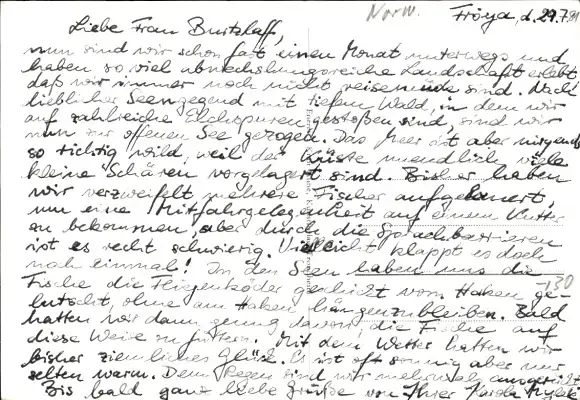 Norw. Frøya, d. 29.7.91
Liebe Frau Burtzlaff,
nun sind wir schon fast einen Monat unterwegs und
haben so viel abwechslungsreiche Landschaft erlebt,
daß wir immer noch nicht reisemüde sind. Nach
lieblicher Seengegend mit tiefem Wald, in dem wir
auf zahlreiche Elchspuren gestoßen sind, sind wir
nun zur offenen See gezogen. Das Meer ist aber nirgends
so richtig wild, weil der Küste unendlich viele
kleine Schären vorgelagert sind. Bisher haben
wir verzweifelt mehrere Fischer aufgelauert,
um eine Mitfahrgelegenheit auf einem Kutter
zu bekommen, aber durch die Sprachbarrieren
ist es recht schwierig. Vielleicht klappt es doch
noch einmal! In den Seen haben uns die
Fische die Fliegenköder geschickt vom Haken ge-
lutscht, ohne am Haken hängenzubleiben. Bald
hatten wir dann genug davon, die Fische auf
diese Weise zu füttern. Mit dem Wetter hatten wir
bisher ziemliches Glück. Es ist oft sonnig aber nur
selten warm. Dem Regen sind wir mehrmals
Bis bald ganz liebe Grüße von Ihrer Karola
-130